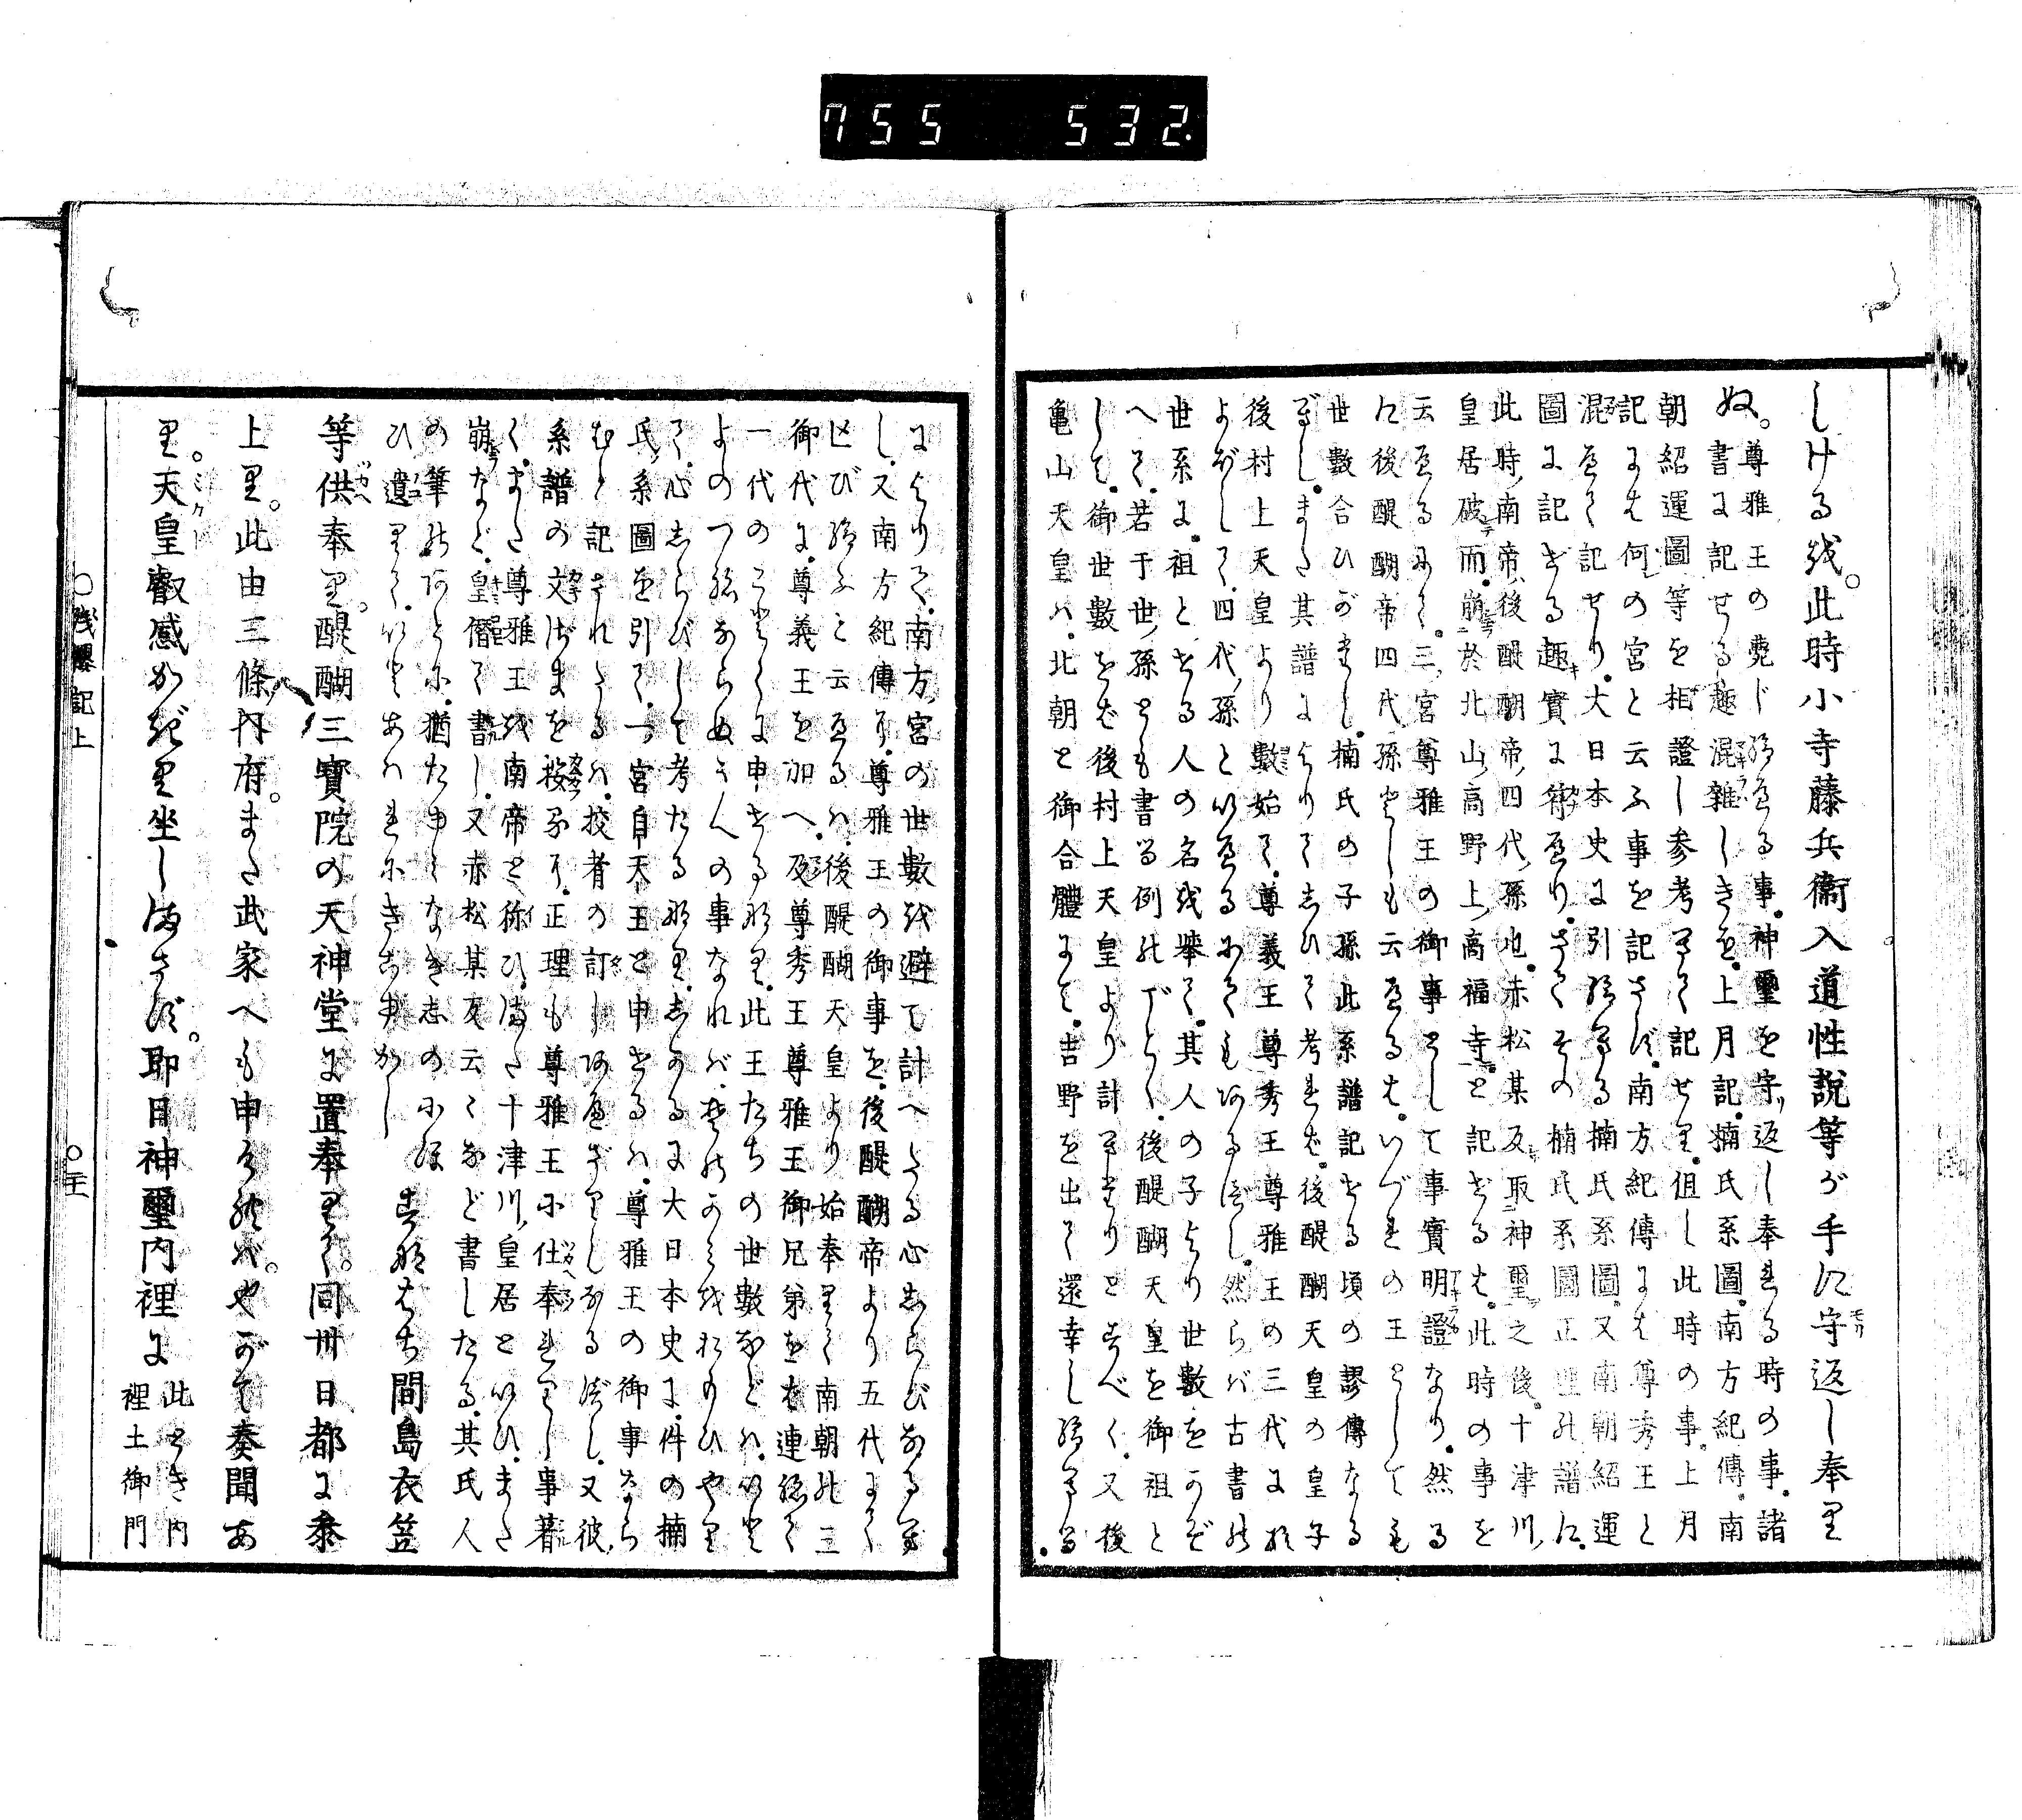 755 532
しける哉。此時小寺藤兵衞入道性説等が手に守返し奉里
ぬ。尊雅王の薨じ給へる事。神璽を守返し奉れる時の事。諸
書に記せる趣混雜しきを。上月記。楠氏系圖。南方紀傳。南
朝紹運圖等を相證し參考へて記せり。但し此時の事。上月
記には何の宮と云ふ事を記さず。南方紀傳には尊秀王と
混へて記せり。大日本史に引給へる楠氏系圖。又南朝紹運
圖に記せる趣實に符へり。さてその楠氏系圖正理の譜に。
此時南帝後醍醐帝四代孫也。赤松某反取神璽之後。十津川
皇居破而。崩於北山高野上高福寺と記せるは。此時の事を
云へるにて。三宮尊雅王の御事として事實明證なり。然る
に後醍醐帝四代孫としも云へるは。いづれの王としても
世數合ひがたし。楠氏の子孫此系譜記せる頃の謬傳なる
べし。また其譜によりてしひて考れば。後醍醐天皇の皇子
後村上天皇より數始て。尊義王尊秀王尊雅王の三代にお
よぼして。四代孫といへるにてもあるべし。然らば古書の
世系に。祖とせる人の名を擧て。其人の子より世數をかぞ
へて。若干世孫とも書る例のごとく。後醍醐天皇を御祖と
して。御世數をば後村上天皇より計へたりとすべく。又後
亀山天皇は。北朝と御合體にて。吉野を出て還幸し給へる
によりて。南方宮の世數を避て計へたる心しらびなるべ
し。又南方紀傳に。尊雅王の御事を。後醍醐帝より五代にて
とび給ふと云へるは。後醍醐天皇より始奉りて南朝の三
御代に。尊義王を加へ。及尊秀王尊雅王御兄弟をも連給て
一代のごとくに申せるなり。此王たちの世數などは。いと
よのつねならぬきんの事なれば。そのかみをおもひやり
て。心しらびして考たるなり。しかるに大日本史に。件の楠
氏系圖を引て。一宮自天王と申せるは。尊雅王の御事なら
むと記されたるは。校者の訂しあへざりしなるべし。又彼
系譜の文ざまを按ふに。正理も尊雅王に仕奉れりし事著
く。また尊雅王を南帝と稱ひ。また十津川皇居といひ。また
崩など。皇僭て書し。又赤松某反云々など書したる。其氏人
の筆のあとに。猶たゆみなき志のにほ
ひ遺りて。いとあはれにきこゆかし
すなはち間島衣笠
等供奉里。醍醐三寶院の天神堂に置奉りて。同卅日都に參
上里。此由三條内府。また武家へも申されば。やがて奏聞あ
里。天皇叡感かぎり坐しまさず。即日神璽内裡に
此とき内
裡土御門
○残櫻記上 ○二十